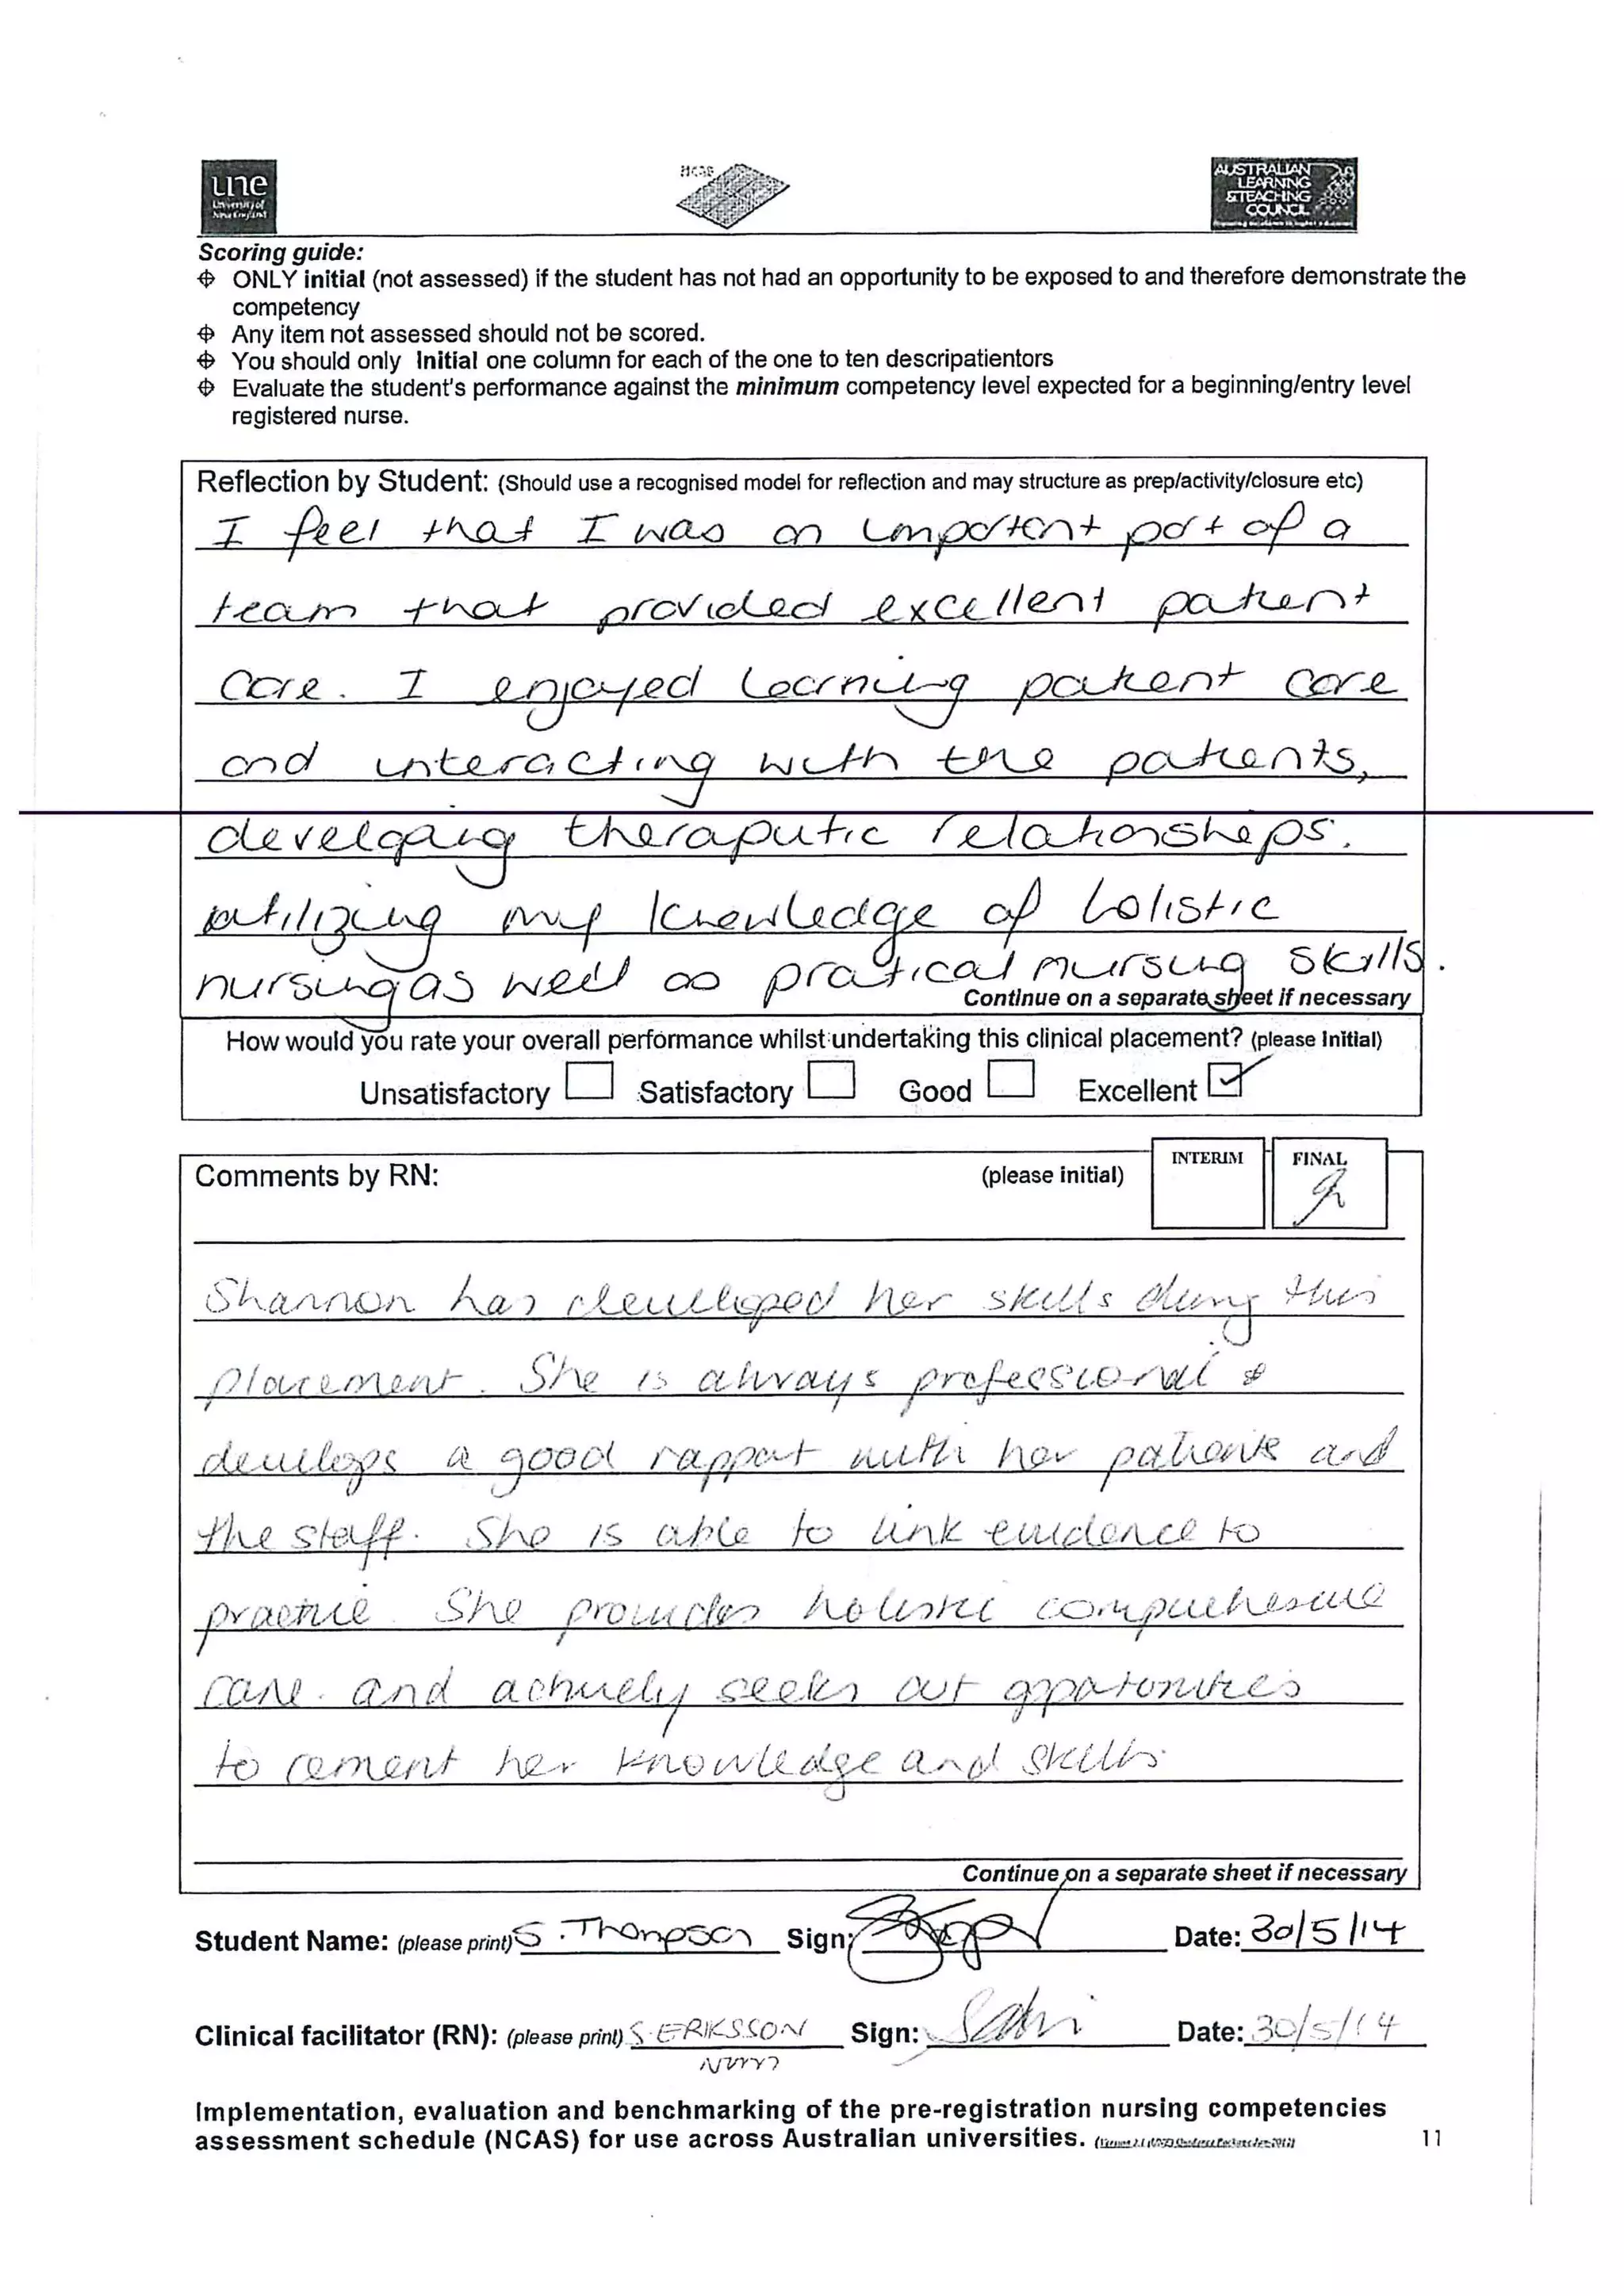 une
University of
New England
NCAS
AUSTRALIAN
LEARNING
&TEACHING
COUNCIL
Scoring guide:
ONLY initial (not assessed) if the student has not had an opportunity to be exposed to and therefore demonstrate the
competency
Any item not assessed should not be scored.
You should only Initial one column for each of the one to ten descripatientors
Evaluate the student's performance against the minimum competency level expected for a beginning/entry level
registered nurse.
Reflection by Student: (Should use a recognised model for reflection and may structure as prep/activity/closure etc)
I feel that I was an important part of a
team that provided excellent patient
care. I enjoyed learning patient care
and interacting with the patients,
developing theraputic relationships.
utilizing my knowledge of holistic
nursing as well as pratical nursing skills.
Continue on a separate sheet if necessary
How would you rate your overall performance whilst undertaking this clinical placement? (please Initial)
Unsatisfactory Satisfactory Good Excellent ✓
INTERIM FINAL
Comments by RN: (please initial)
Shannon has developed her skills during this
placement. She is always professional &
develops a good rapport with her patients and
the staff. She is able to link evidence to
practice. She provides holistic comprehesive
care. and actively seeks out opportunities
to cement her knowledge and skills.
Continue on a separate sheet if necessary
Student Name: (please print) S. Thompson Sign: Date: 30/5/14
Clinical facilitator (RN): (please print) S. ERIKSSON Sign: Date: 30/5/14
Implementation, evaluation and benchmarking of the pre-registration nursing competencies
assessment schedule (NCAS) for use across Australian universities. 11